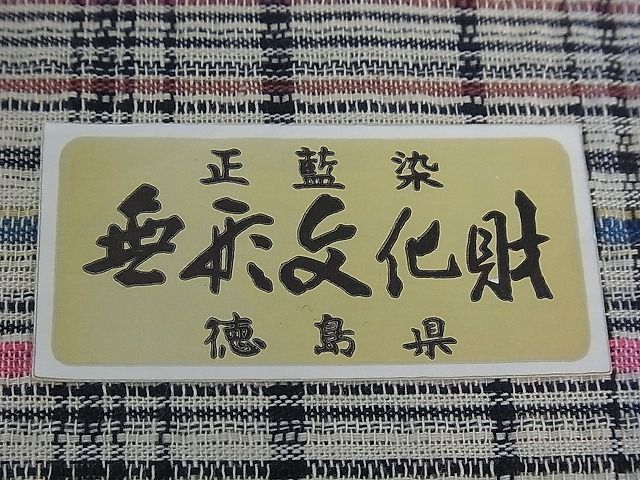 正藍染
無形文化財
徳島県